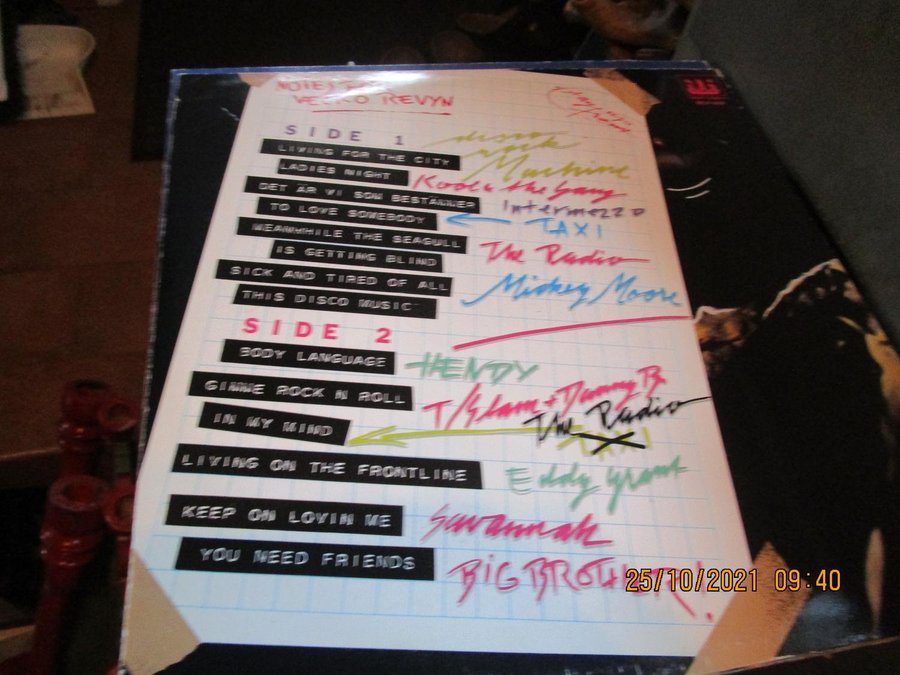 NOTES FOR
VECKO REVYN
SIDE 1
LIVING FOR THE CITY disco rock Machine
LADIES NIGHT Kool & the Gang
DET ÄR VI SOM BESTÄLLER Intermezzo
TO LOVE SOMEBODY TAXI
MEANWHILE THE SEAGULL
IS GETTING BLIND The Radio
SICK AND TIRED OF ALL
THIS DISCO MUSIC Mickey Moore
SIDE 2
BODY LANGUAGE HENDY
GIMME ROCK N ROLL T/Slam + Danny B.
IN MY MIND The Radio
TAXI
LIVING ON THE FRONTLINE Eddy Grant
KEEP ON LOVIN ME Savannah
YOU NEED FRIENDS BIG BROTHER!
25/10/2021 09:40